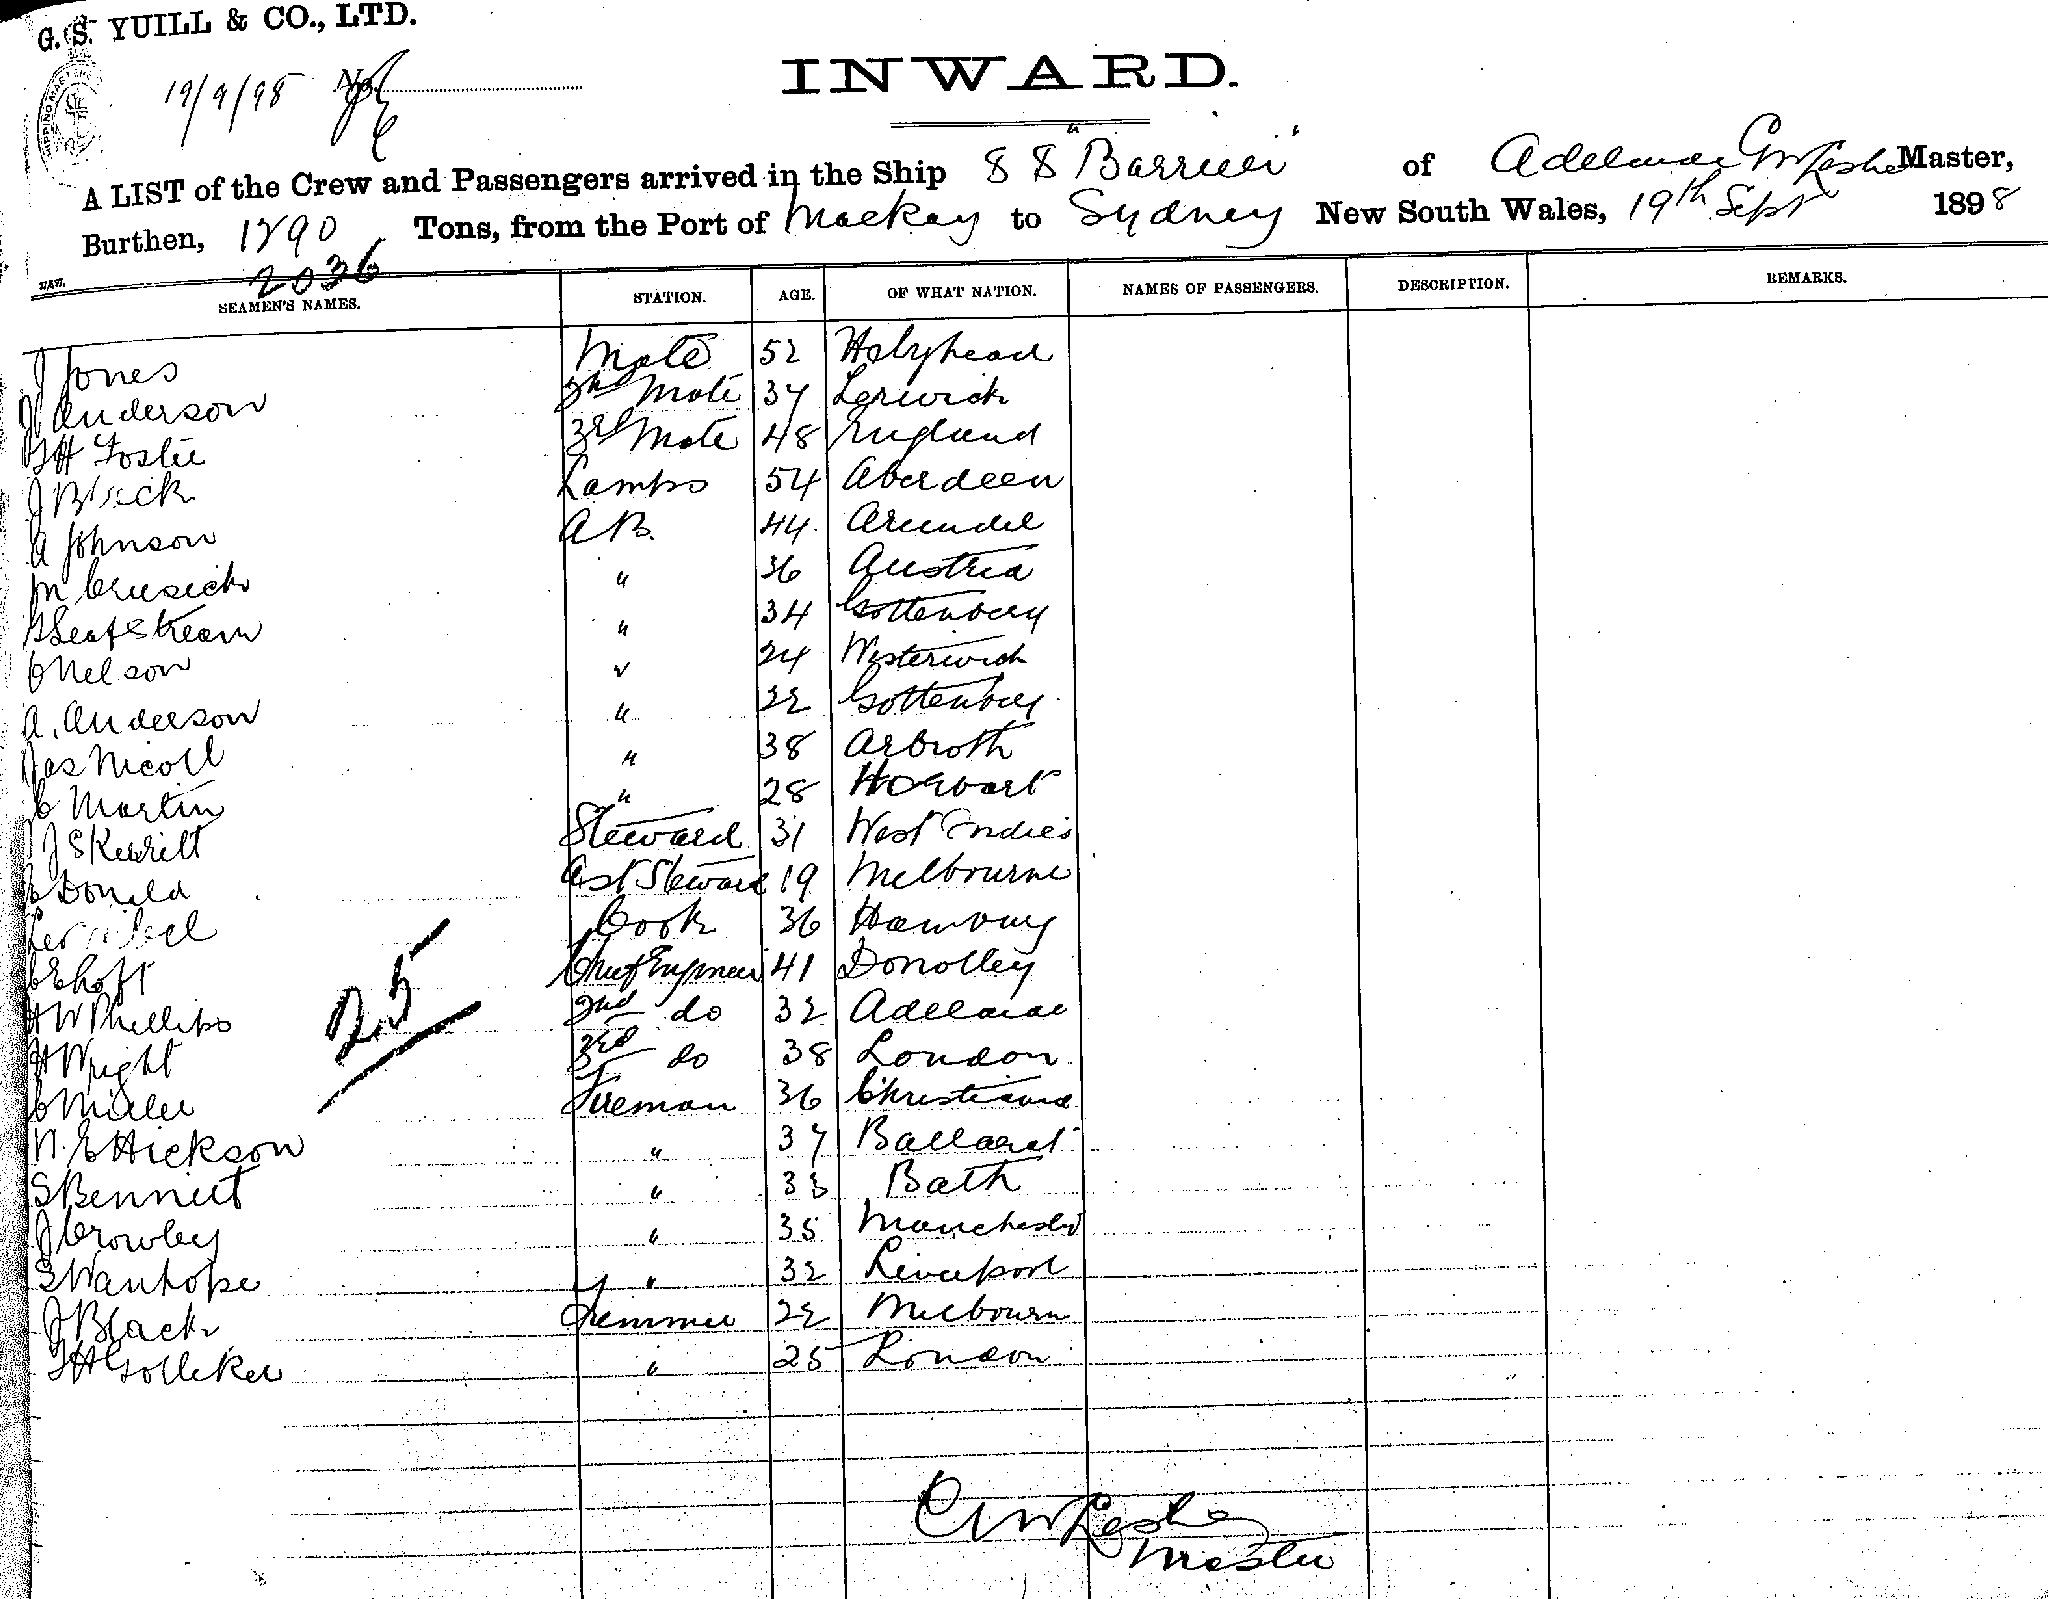 G. S. YUILL & CO., LTD.
19/9/98 No.
INWARD.
A LIST of the Crew and Passengers arrived in the Ship S S "Barrier" of Adelaide Master,
Burthen, 1790 Tons, from the Port of Mackay to Sydney New South Wales, 19th Sept 1898
2036
SEAMEN'S NAMES. STATION. AGE. OF WHAT NATION. NAMES OF PASSENGERS. DESCRIPTION. REMARKS.
J Jones Mate 52 Holyhead
J Anderson 2nd Mate 37 Lerwick
H Foster 3rd Mate 48 England
J Lamps 54 Aberdeen
A Johnson A B. 44 Arundel
M Crusich " 36 Austria
Leafstream " 34 Gottenburg
C Nelson " 24 Westerwich
A. Anderson " 22 Gottenburg
Jas Nicoll " 38 Arbroth
C Martin " 28 Hobart
J Skerritt Steward 31 West Indies
C Donald Ast Steward 19 Melbourne
Cook 36 Hamburg
Chief Engineer 41 Donolley
H W Phillips 2nd do 32 Adelaide
H Wright 3rd do 38 London
C Miller Fireman 36 Christiania
N. E Hickson " 37 Ballarat
S Bennett " 33 Bath
J Crowley " 35 Manchester
S Wauhope " 32 Liverpool
J Black Trimmer 22 Melbourn
H Golleker " 25 London
25
Leslie
Master